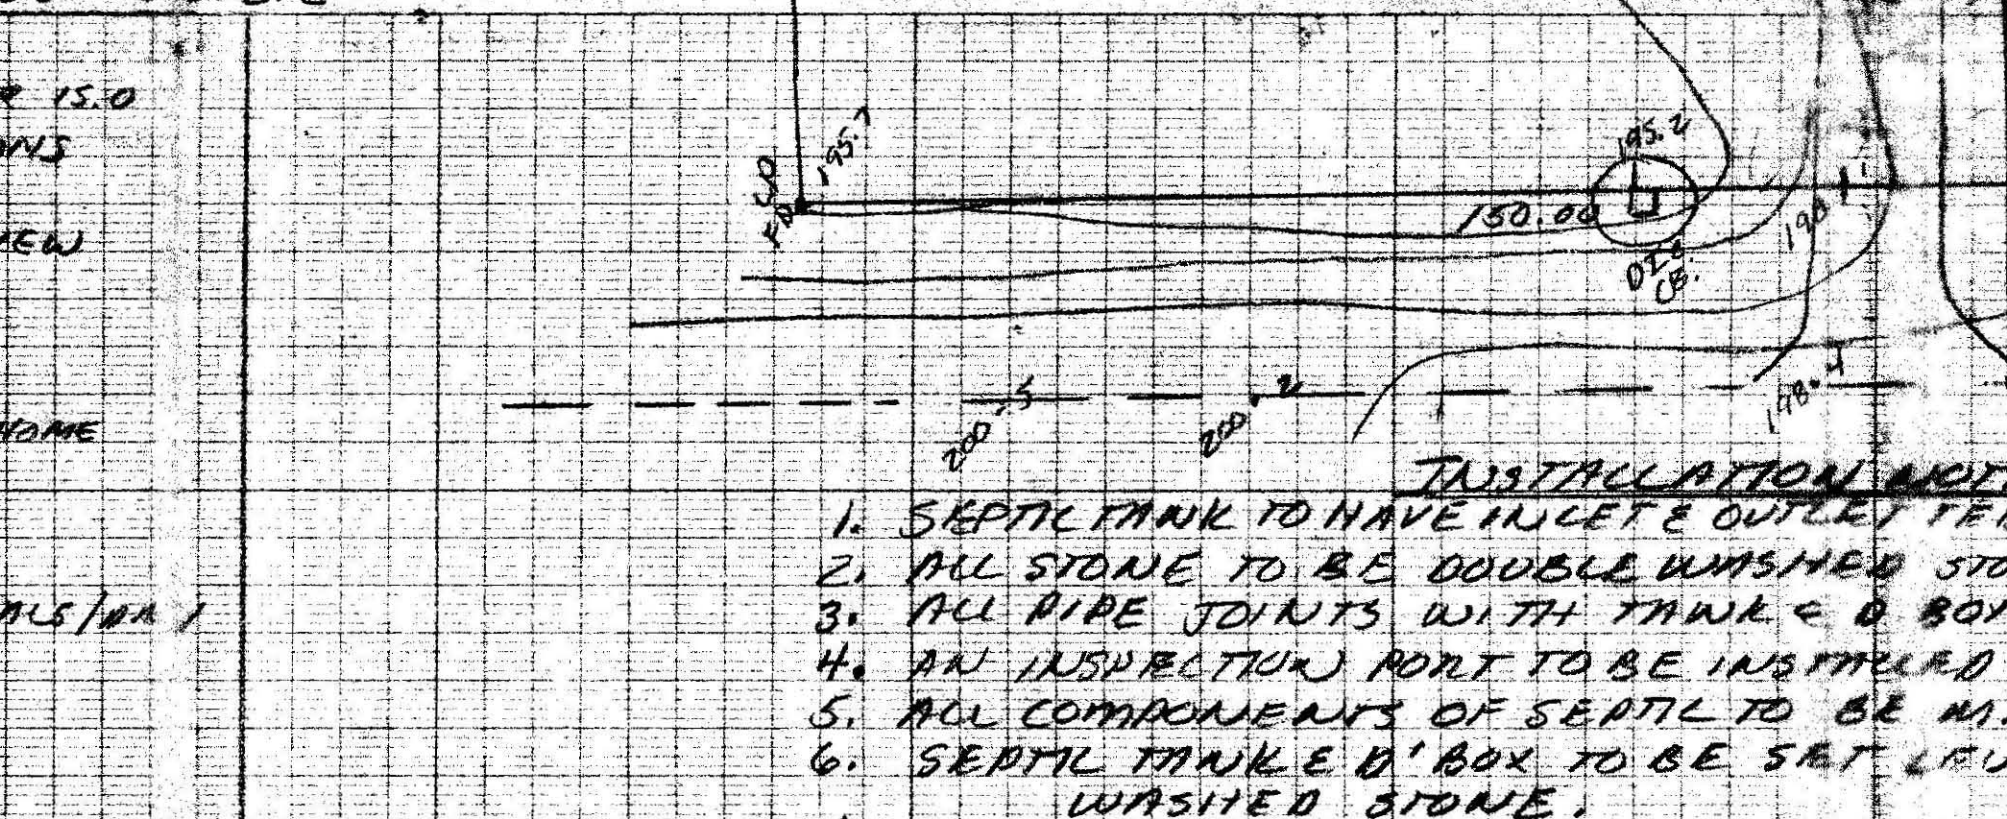 15.0
195.7
195.2
150.00
190
200.5
200.2
198.4
HOME
INSTALLATION NOT
1. SEPTIC TANK TO HAVE INLET & OUTLET TE
2. ALL STONE TO BE DOUBLE WASHED STO
3. ALL PIPE JOINTS WITH TANK & D BOX
4. AN INSPECTION PORT TO BE INSTALLED
5. ALL COMPONENTS OF SEPTIC TO BE M
6. SEPTIC TANK & D'BOX TO BE SET LEV
WASHED STONE.